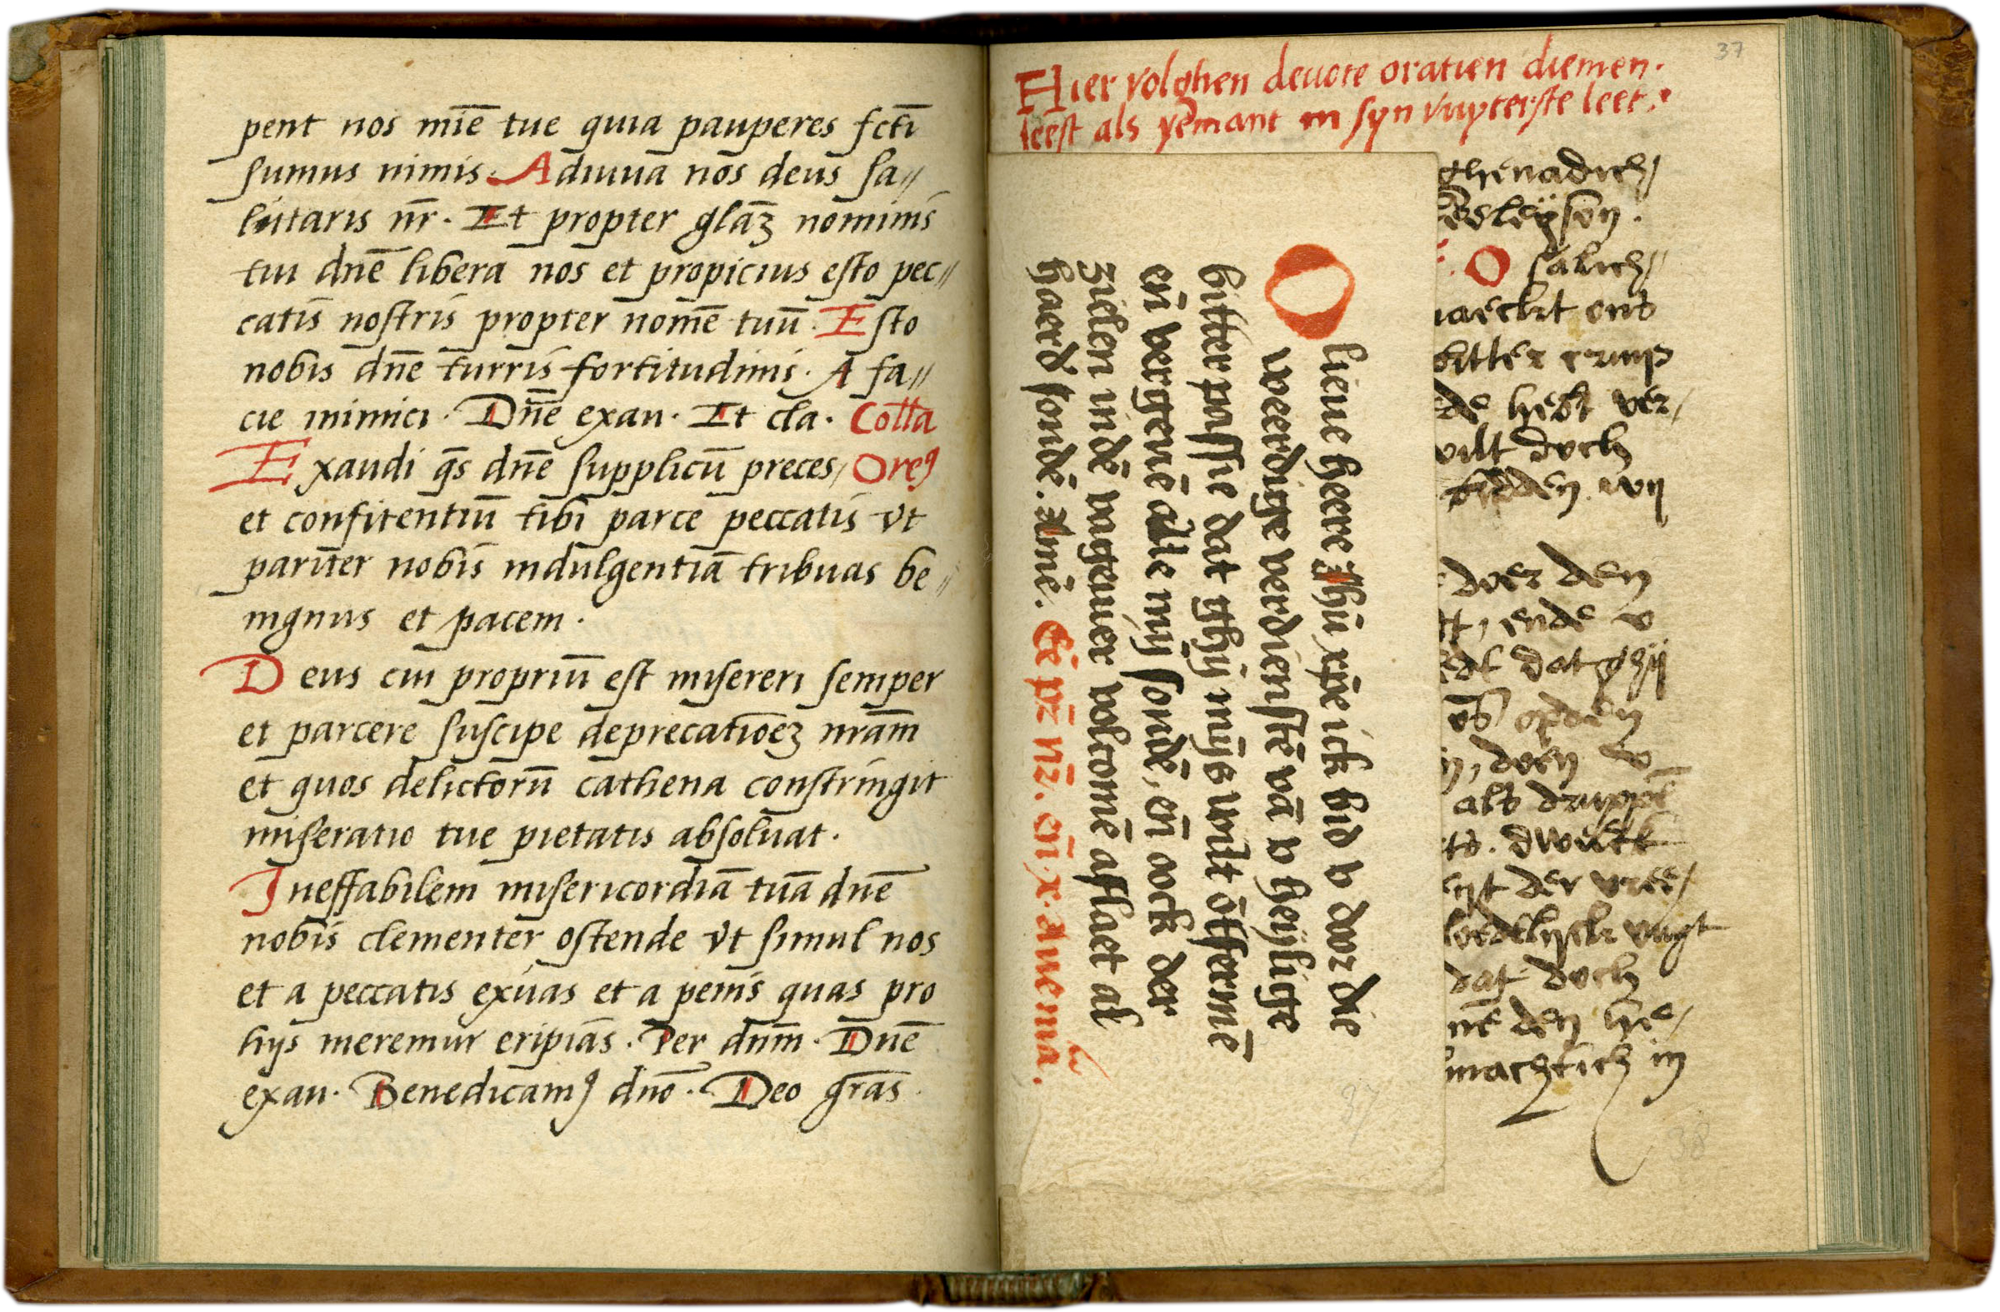 pent nos mīē tue quia pauperes fctī
sumus nimis. Adiuua nos deus sa//
lutaris nr̄. Et propter glāꝫ nominis
tui dnē libera nos et propicius esto pec//
catis nostris propter nomē tuū. Esto
nobis dnē turris fortitudinis. A fa//
cie inimici. Dnē exau. Et cla. Coll̄a
Exaudi q̄s dnē supplicū preces/ Oreꝯ
et confitentiū tibi parce peccatis vt
parit̄er nobis indulgentiā tribuas be//
nignus et pacem.
Deus cui propriū est misereri semper
et parcere suscipe deprecatiōeꝫ nrām
et quos delictorū cathena constringit
miseratio tue pietatis absoluat.
Ineffabilem misericordiā tuā dnē
nobis clementer ostende vt simul nos
et a peccatis exuas et a penis quas pro
hijs meremur eripias. Per dnm̄. Dnē
exau. Benedicamꝯ dnō. Deo grās
37
Hier volghen deuote oratien diemen.
leest als yemant in syn vuyterste leet.
O lieue heere Jhū xp̄e ick bid v doer die
weerdige verdienstē vā v heijlige
bitter passie dat ghij mijs wilt ōtfermē
eñ vergeuē alle mijn sondē, eñ oock der
zielen indē vageuier volcomē aflaet al
haerd sondē. Amē. Eē pr̄ nr̄. eñ x. Aue ma.
37
ghenadich/
O salich//
naeckt ont
bitter
de hebt ver/
wilt doch
bidden. wij
doer den
ende v
dat ghij
op den
doen v
als druppel
der vree/
dat doch
den hie/
machtich in
38